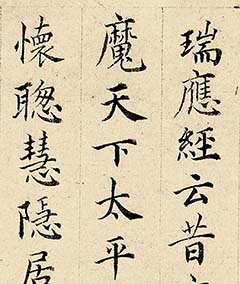 瑞應經云昔
魔天下太平
懷聰慧隱居